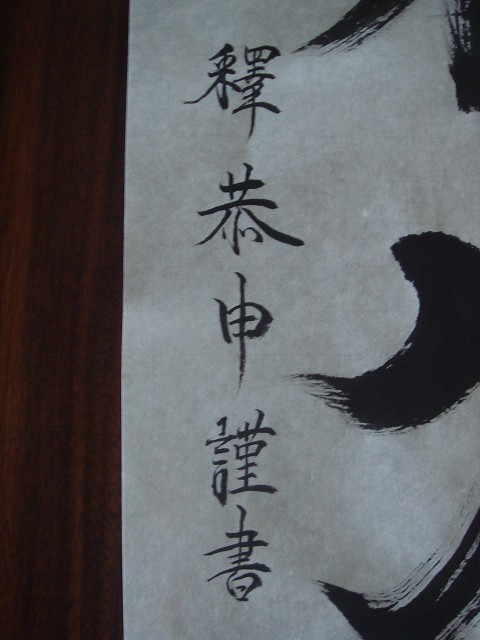 釋恭申謹書